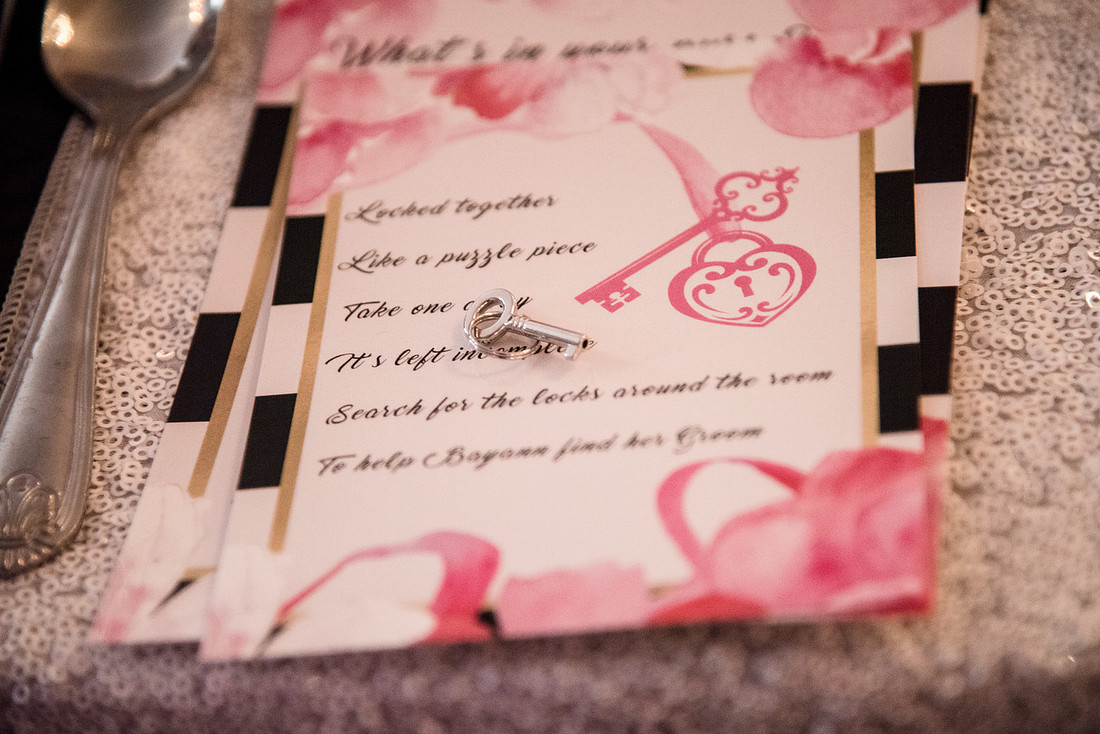 What's in your
Locked together
Like a puzzle piece
Take one away
It's left incomplete
Search for the locks around the room
To help Bayann find her Groom